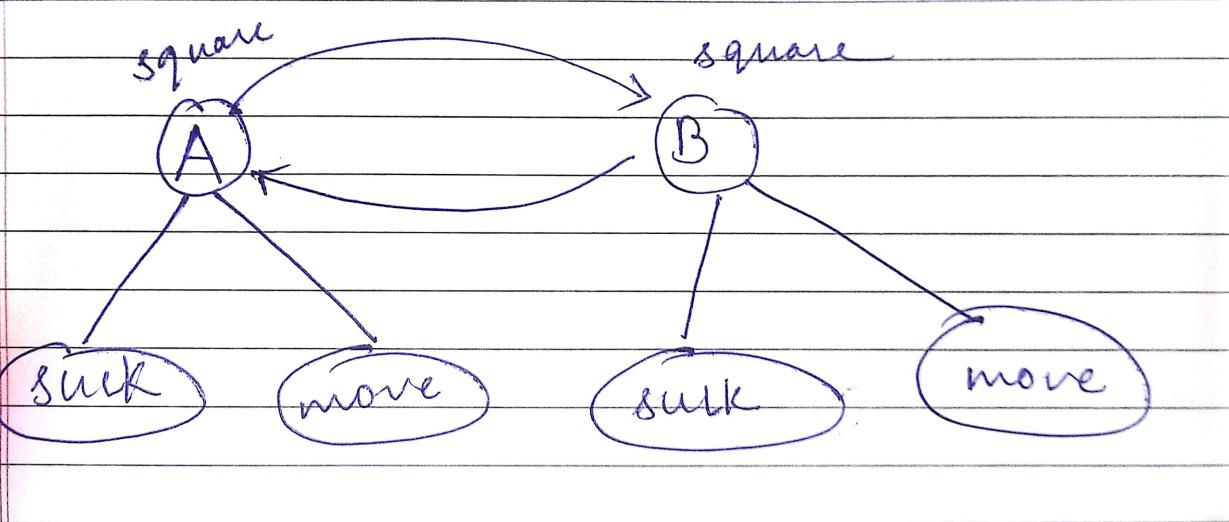 square
square
A
B
suck
move
suck
move